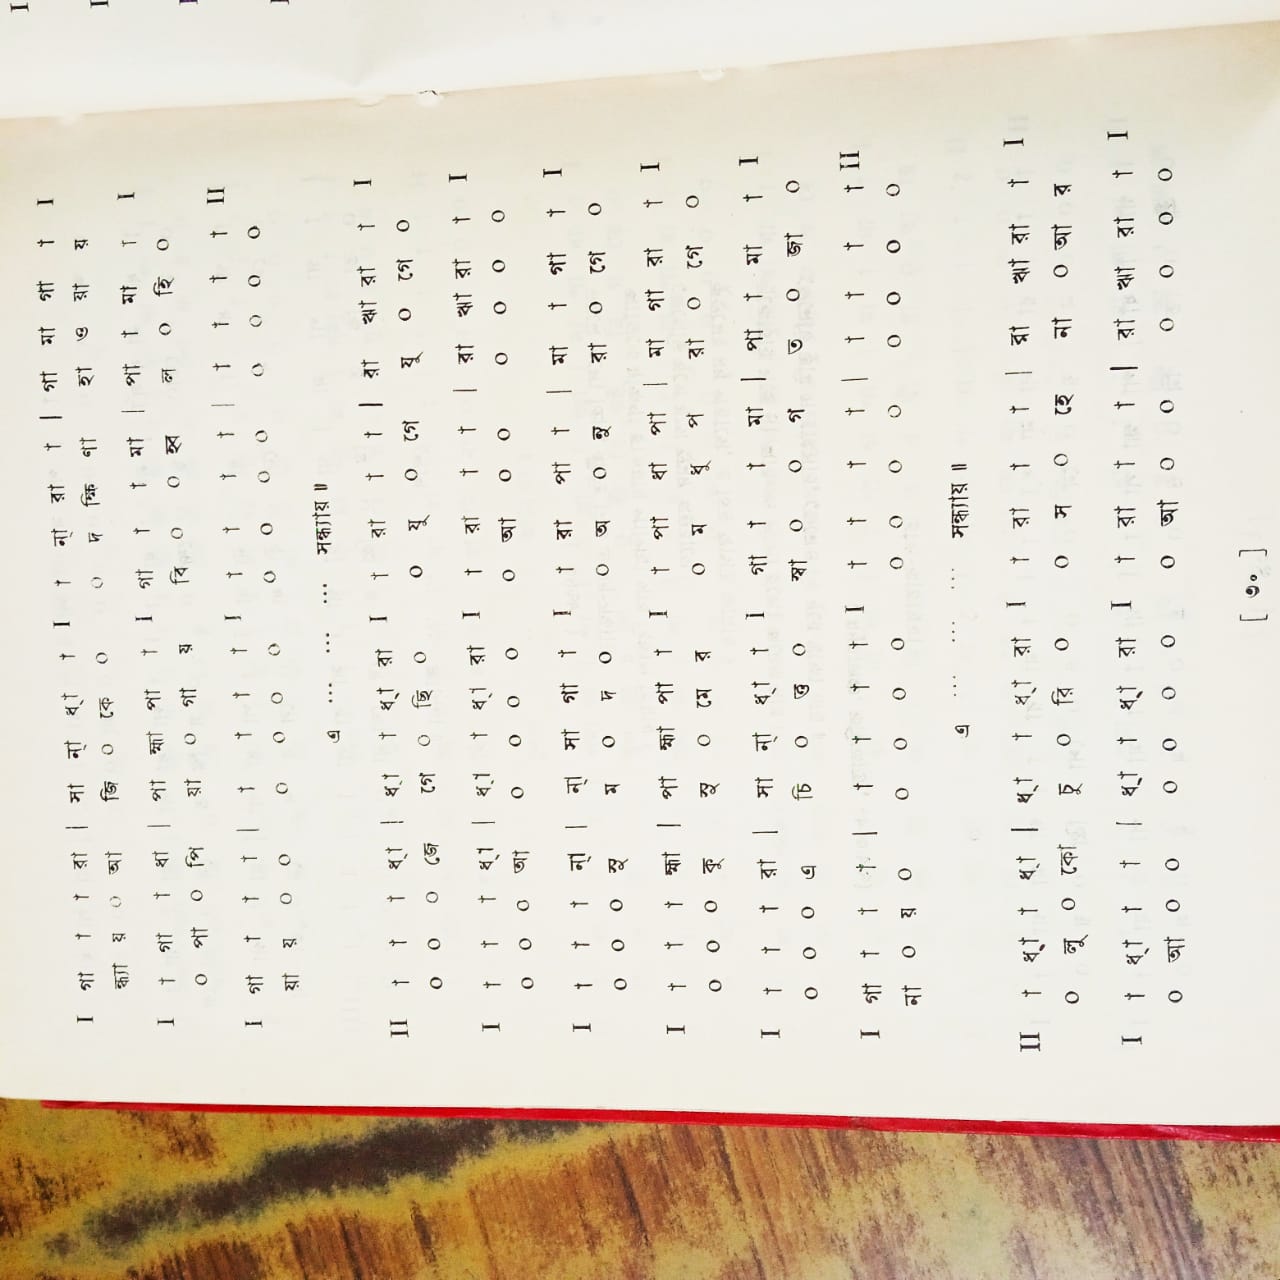 I গা † † † রা | সা ন্‌া ধ্‌া † I † ন্‌া রা † | গা মা গা † I
ন্ধ্যা য় ০ আ জি ০ কে ০ ০ দ ক্ষি ণা হা ও য়া য়
I † গা † ধা | পা হ্মা পা † I গা † † মা | পা † মা † I
০ পা ০ পি য়া ০ গা য় বি ০ ০ হ্ব ল ০ হি ০
I গা † † † | † † † † I † † † † | † † † † II
য়া য় ০ ০ ০ ০ ০ ০ ০ ০ ০ ০ ০ ০ ০ ০
এ ... ... ... সন্ধ্যায় ॥
II † † † ধ্‌া | ধ্‌া † ধ্‌া রা I † রা † † | রা ঋা রা † I
০ ০ ০ জে গে ০ ছি ০ ০ যু ০ গে যু ০ গে ০
I † † † ধ্‌া | ধ্‌া † ধ্‌া রা I † রা † † | রা ঋা রা † I
০ ০ ০ আ ০ ০ ০ ০ ০ আ ০ ০ ০ ০ ০ ০
I † † † ন্‌া | ন্‌া সা গা † I † রা পা † | মা † গা † I
০ ০ ০ সু ম ০ দ ০ ০ অ ০ নু রা ০ গে ০
I † † † হ্মা | পা হ্মা পা † I † পা ধা পা | মা গা রা † I
০ ০ ০ কু সু ০ মে র ০ ম ধু প রা ০ গে ০
I † † † রা | সা ন্‌া ধ্‌া † I গা † † মা | পা † মা † I
০ ০ ০ এ চি ০ ত্ত ০ স্বা ০ ০ গ ত ০ জা ০
I গা † † † | † † † † I † † † † | † † † † II
না ০ য় ০ ০ ০ ০ ০ ০ ০ ০ ০ ০ ০ ০ ০
এ .... ... ... সন্ধ্যায় ॥
II † ধ্‌া † ধ্‌া | ধ্‌া † ধ্‌া রা I † রা † † | রা ঋা রা † I
০ লু ০ কো চু ০ রি ০ ০ স ০ হে না ০ আ র
I † ধ্‌া † † | ধ্‌া † ধ্‌া রা I † রা † † | রা ঋা রা † I
০ আ ০ ০ ০ ০ ০ ০ ০ আ ০ ০ ০ ০ ০ ০
[ ৩০ ]